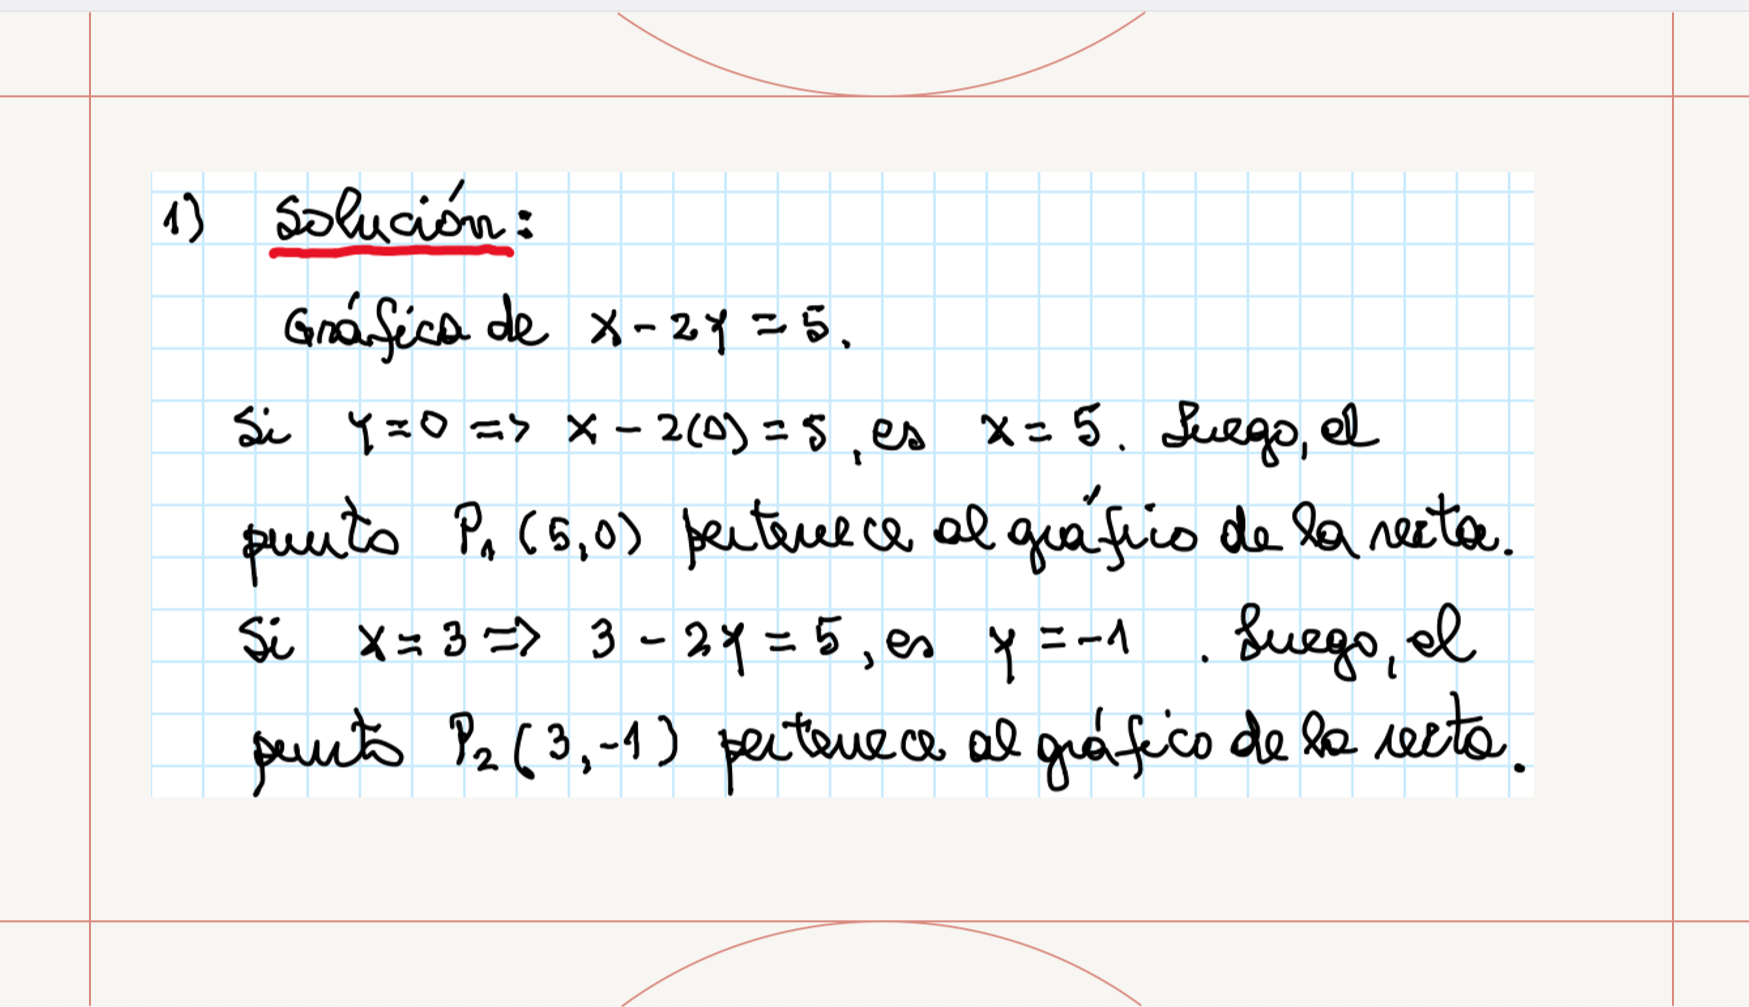 1) Solución:
Gráfica de x - 2y = 5.
Si y = 0 => x - 2(0) = 5, es x = 5. Luego, el
punto P₁ (5,0) pertenece al gráfico de la recta.
Si x = 3 => 3 - 2y = 5, es y = -1 . Luego, el
punto P₂ (3,-1) pertenece al gráfico de la recta.